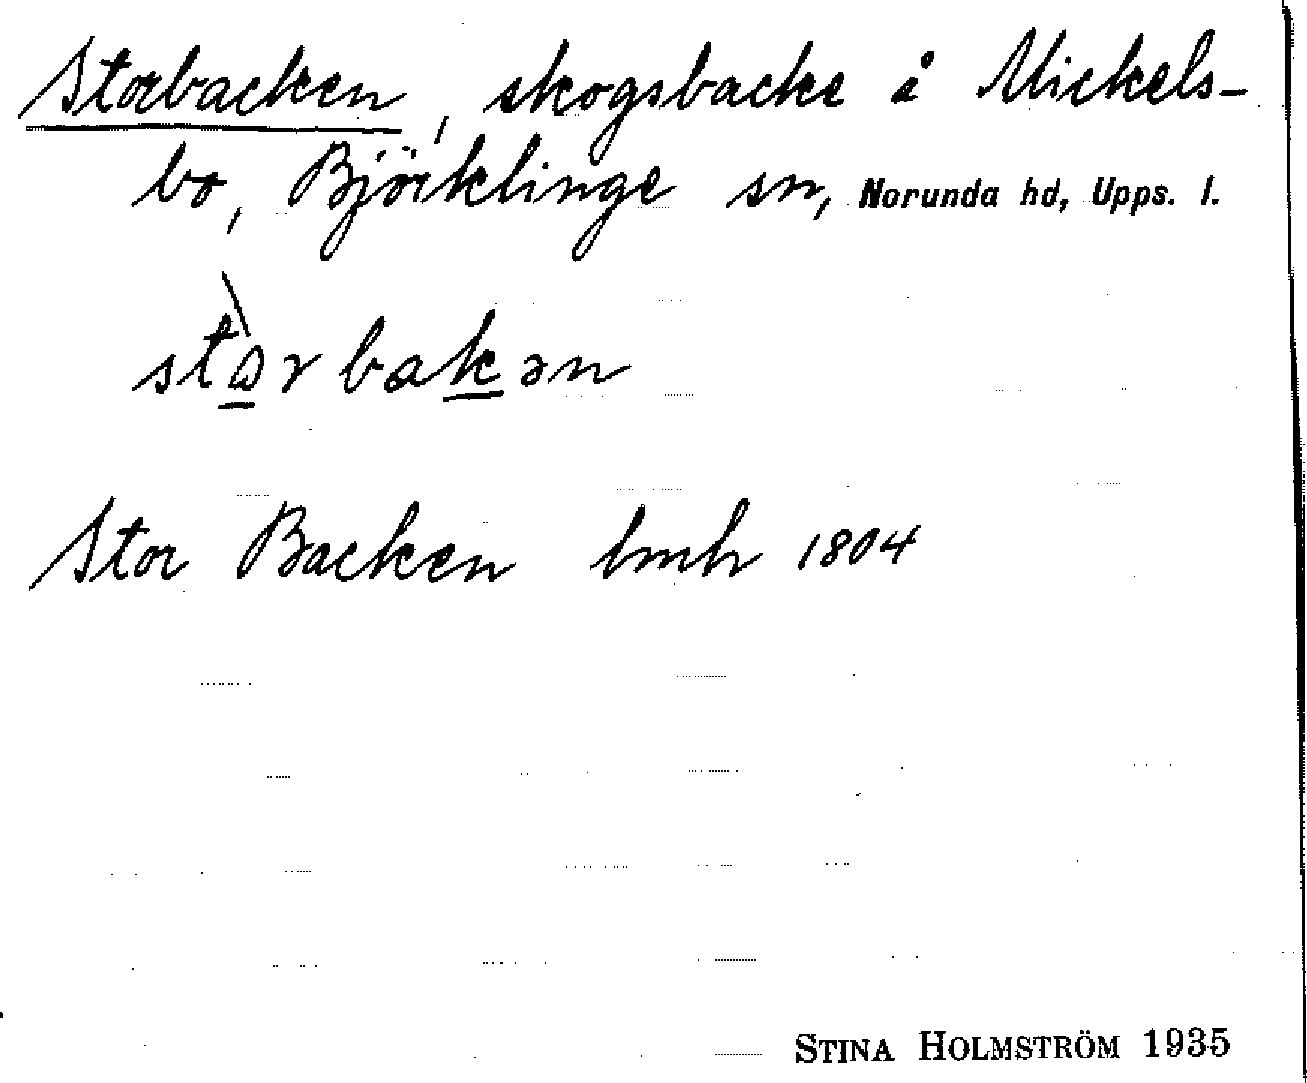 Storbacken, skogsbacke å Mickels-
bo, Björklinge sn, Norunda hd, Upps. l.
stòrbakən
Stor Backen lmh 1804
STINA HOLMSTRÖM 1935